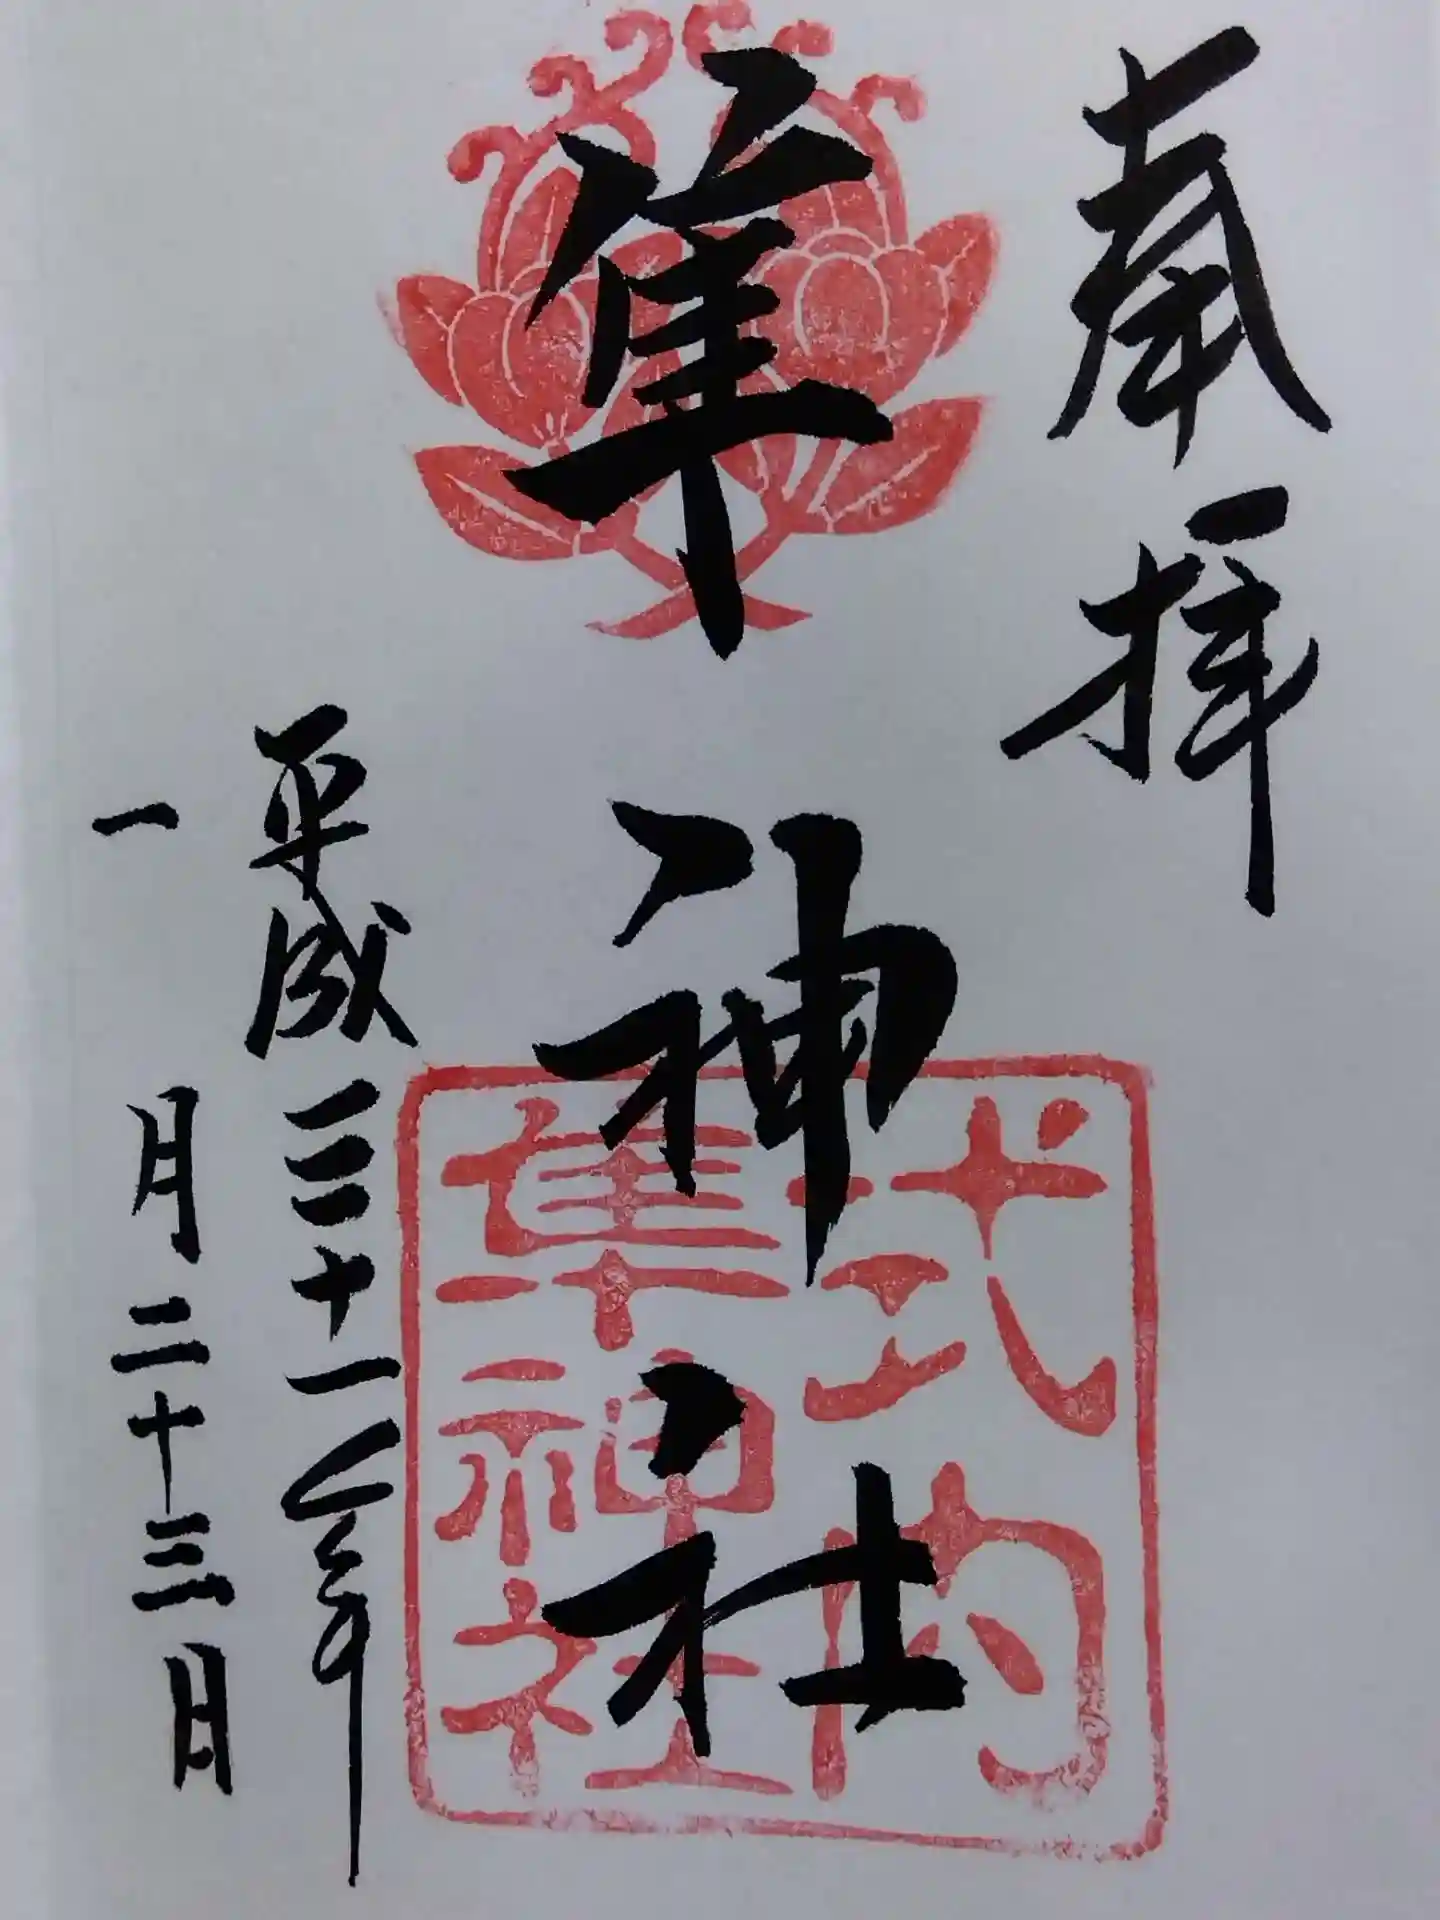 奉拝
隼神社
式内
隼神社
平成三十一年
一月二十三日